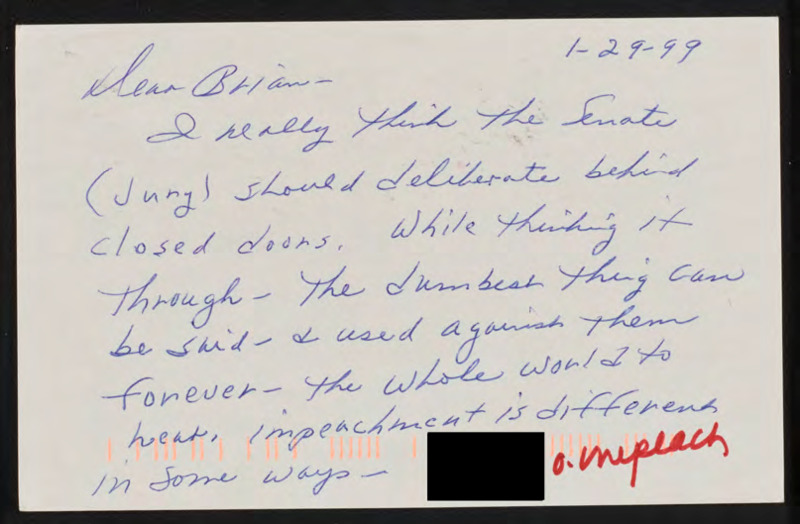 1-29-99
Dear Brian-
I really think the Senate
(Jury) should deliberate behind
closed doors. While thinking it
through- the dumbest thing can
be said- & used against them
forever- the whole world to
hear. impeachment is different
in some ways-